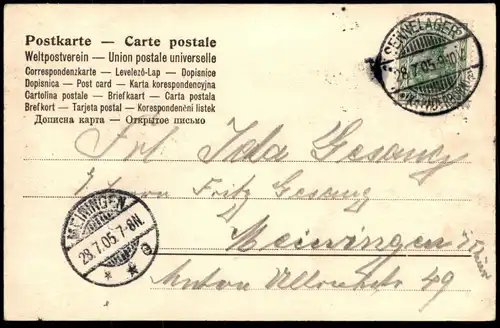 Postkarte — Carte postale
Weltpostverein — Union postale universelle
Correspondenzkarte — Levelező-Lap — Dopisnice
Dopisnica — Post card — Karta korespondencyjna
Cartolina postale — Briefkaart — Carta postala
Brefkort — Tarjeta postal — Korespondenční lístek
Дописна карта — Открытое письмо
SENNELAGER
28.7.05.
Frl. Ida Gesang
Herrn Fritz Gesang
Meiningen
49
MEININGEN
28.7.05.7-8N.